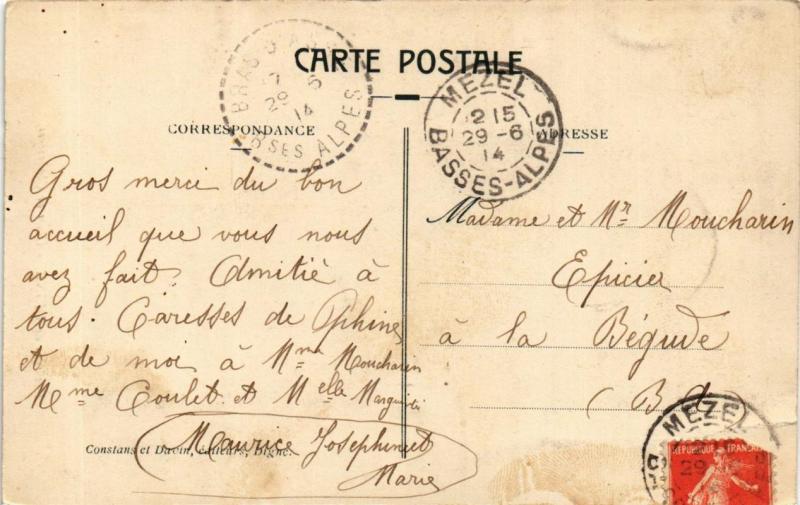 CARTE POSTALE
CORRESPONDANCE
ADRESSE
BRAS D'ASSE
29 6
14
BSES ALPES
MEZEL
2 15
29 -6
14
BASSES-ALPES
Gros merci du bon
accueil que vous nous
avez fait. Amitié à
tous. Caresses de Phine
et de moi à Mme Moucharin
Mme Coulet et Melle
Maurice Josephine et
Marie
Constans et Davin, éditeurs, Digne.
Madame et Mr Moucharin
Epicier
à la Bégude
MEZEL
29
REPUBLIQUE FRANÇAISE